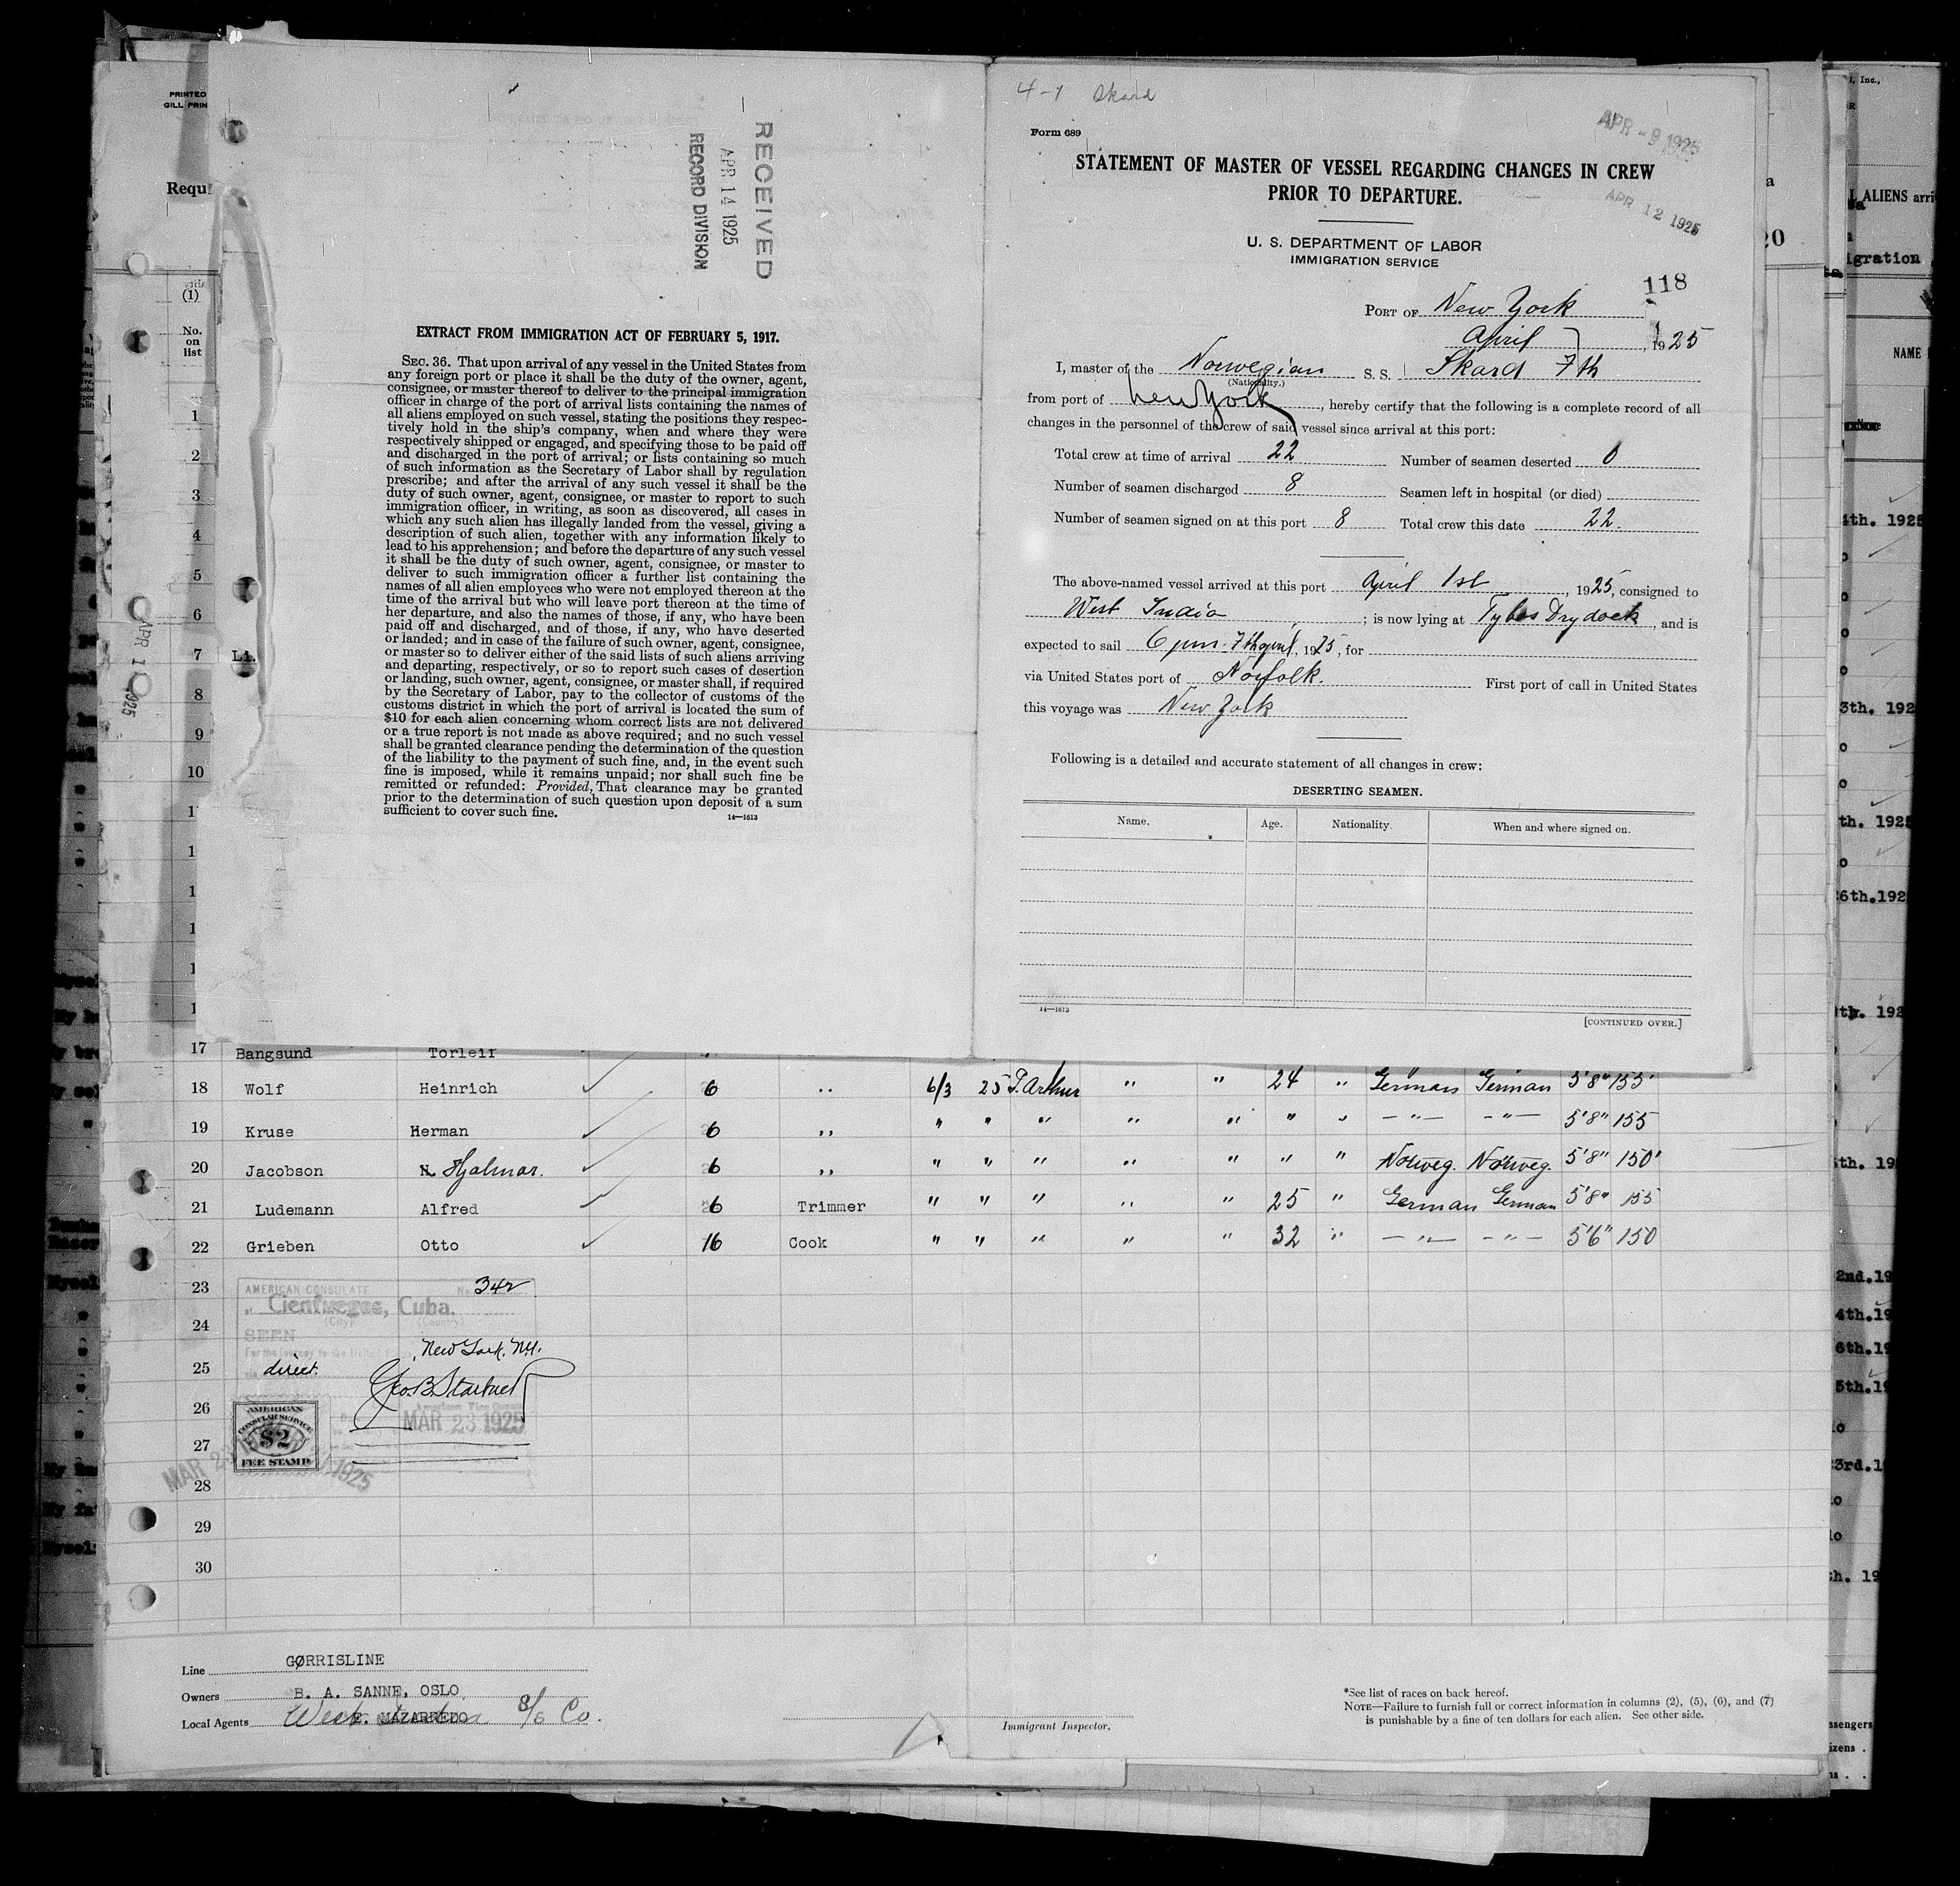 PRINTED
GILL PRIN
Requi
(1)
No.
on
list
RECEIVED
APR 14 1925
RECORD DIVISION
EXTRACT FROM IMMIGRATION ACT OF FEBRUARY 5, 1917.
SEC. 36. That upon arrival of any vessel in the United States from
any foreign port or place it shall be the duty of the owner, agent,
consignee, or master thereof to deliver to the principal immigration
officer in charge of the port of arrival lists containing the names of
all aliens employed on such vessel, stating the positions they respec-
tively hold in the ship's company, when and where they were
respectively shipped or engaged, and specifying those to be paid off
and discharged in the port of arrival; or lists containing so much
of such information as the Secretary of Labor shall by regulation
prescribe; and after the arrival of any such vessel it shall be the
duty of such owner, agent, consignee, or master to report to such
immigration officer, in writing, as soon as discovered, all cases in
which any such alien has illegally landed from the vessel, giving a
description of such alien, together with any information likely to
lead to his apprehension; and before the departure of any such vessel
it shall be the duty of such owner, agent, consignee, or master to
deliver to such immigration officer a further list containing the
names of all alien employees who were not employed thereon at the
time of the arrival but who will leave port thereon at the time of
her departure, and also the names of those, if any, who have been
paid off and discharged, and of those, if any, who have deserted
or landed; and in case of the failure of such owner, agent, consignee,
or master so to deliver either of the said lists of such aliens arriving
and departing, respectively, or so to report such cases of desertion
or landing, such owner, agent, consignee, or master shall, if required
by the Secretary of Labor, pay to the collector of customs of the
customs district in which the port of arrival is located the sum of
$10 for each alien concerning whom correct lists are not delivered
or a true report is not made as above required; and no such vessel
shall be granted clearance pending the determination of the question
of the liability to the payment of such fine, and, in the event such
fine is imposed, while it remains unpaid; nor shall such fine be
remitted or refunded: Provided, That clearance may be granted
prior to the determination of such question upon deposit of a sum
sufficient to cover such fine.
14—1613
4-7 Skard
Form 689
APR - 9 1925
STATEMENT OF MASTER OF VESSEL REGARDING CHANGES IN CREW
PRIOR TO DEPARTURE.
APR 12 1925
U. S. DEPARTMENT OF LABOR
IMMIGRATION SERVICE
118
PORT OF New York
April , 1925
I, master of the Norwegian S. S. Skard 7th
(Nationality.)
from port of New York, hereby certify that the following is a complete record of all
changes in the personnel of the crew of said vessel since arrival at this port:
Total crew at time of arrival 22 Number of seamen deserted 0
Number of seamen discharged 8 Seamen left in hospital (or died)
Number of seamen signed on at this port 8 Total crew this date 22.
The above-named vessel arrived at this port April 1st, 1925, consigned to
West India ; is now lying at Drydock, and is
expected to sail 6 pm. 7th april, 1925, for
via United States port of Norfolk. First port of call in United States
this voyage was New York
Following is a detailed and accurate statement of all changes in crew:
DESERTING SEAMEN.
Name. Age. Nationality. When and where signed on.
14—1613
[CONTINUED OVER.]
1
2
3
4
5
6
7
8
9
10
17 Bangsund Torleif
18 Wolf Heinrich 6 ,, 6/3 25 P. Arthur " " 24 " German German 5'8" 155'
19 Kruse Herman 6 ,, " " " " " " " — " — — " — 5'8" 155
20 Jacobson H. Hjalmar. 6 ,, " " " " " " " Norweg. Norweg. 5'8" 150'
21 Ludemann Alfred 6 Trimmer " " " " " 25 " German German 5'8" 155
22 Grieben Otto 16 Cook " " " " " 32 " — " — — " — 5'6" 150
23
24
25
26
27
28
29
30
AMERICAN CONSULATE No. 342
at Cienfuegos, Cuba.
(City) (Country)
SEEN
For the journey to the United States
New York, N.Y.
direct.
Geo. B. Starbuck
American Vice Consul
MAR 23 1925
AMERICAN
CONSULAR SERVICE
$2
FEE STAMP
Line GØRRISLINE
Owners B. A. SANNE, OSLO
Local Agents E. MAZARREDO
West India S/S Co.
Immigrant Inspector.
*See list of races on back hereof.
NOTE—Failure to furnish full or correct information in columns (2), (5), (6), and (7)
is punishable by a fine of ten dollars for each alien. See other side.
ALIENS arri
igration
NAME